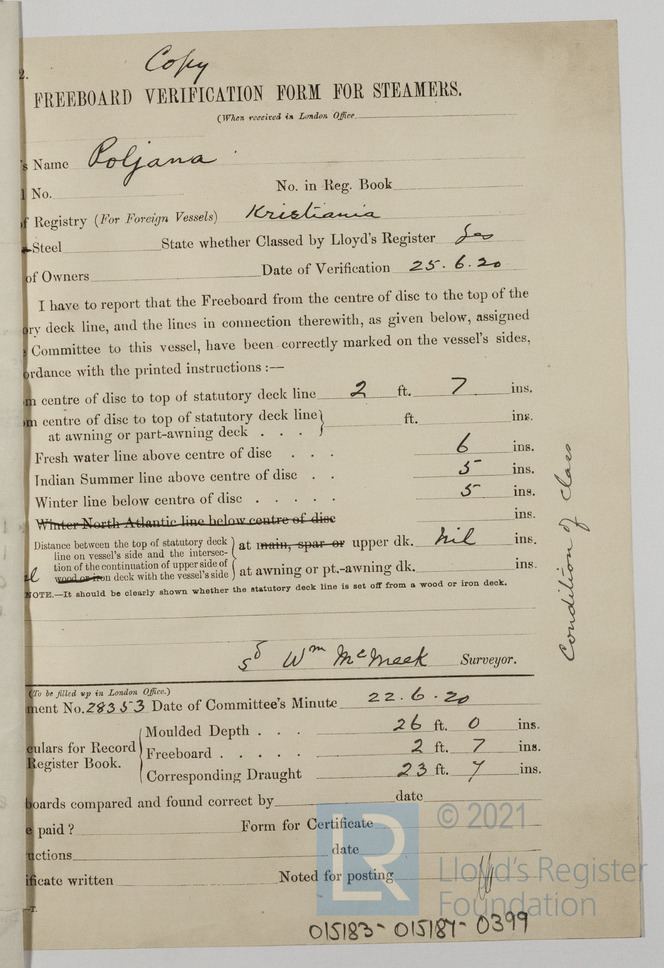 2.
Copy
FREEBOARD VERIFICATION FORM FOR STEAMERS.
(When received in London Office
s Name Poljana
l No. No. in Reg. Book
f Registry (For Foreign Vessels) Kristiania
Steel State whether Classed by Lloyd's Register Yes
of Owners Date of Verification 25.6.20
I have to report that the Freeboard from the centre of disc to the top of the
ory deck line, and the lines in connection therewith, as given below, assigned
e Committee to this vessel, have been correctly marked on the vessel's sides,
ordance with the printed instructions :—
m centre of disc to top of statutory deck line 2 ft. 7 ins.
m centre of disc to top of statutory deck line } ft. ins.
at awning or part-awning deck . . .
Fresh water line above centre of disc . . . 6 ins.
Indian Summer line above centre of disc . . 5 ins.
Winter line below centre of disc . . . . . 5 ins.
Winter North Atlantic line below centre of disc ins.
Distance between the top of statutory deck
line on vessel's side and the intersec-
tion of the continuation of upper side of
wood or iron deck with the vessel's side
at main, spar or upper dk. Nil ins.
at awning or pt.-awning dk. ins.
NOTE.—It should be clearly shown whether the statutory deck line is set off from a wood or iron deck.
Condition of Class
sd Wm McMeek Surveyor.
(To be filled up in London Office.)
ment No. 28353 Date of Committee's Minute 22.6.20
culars for Record
Register Book.
Moulded Depth . . . 26 ft. 0 ins.
Freeboard . . . . . 2 ft. 7 ins.
Corresponding Draught 23 ft. 7 ins.
boards compared and found correct by date
e paid ? Form for Certificate
uctions date
ificate written Noted for posting
—T.
LR
© 2021
Lloyd's Register
Foundation
015183-015187-0399